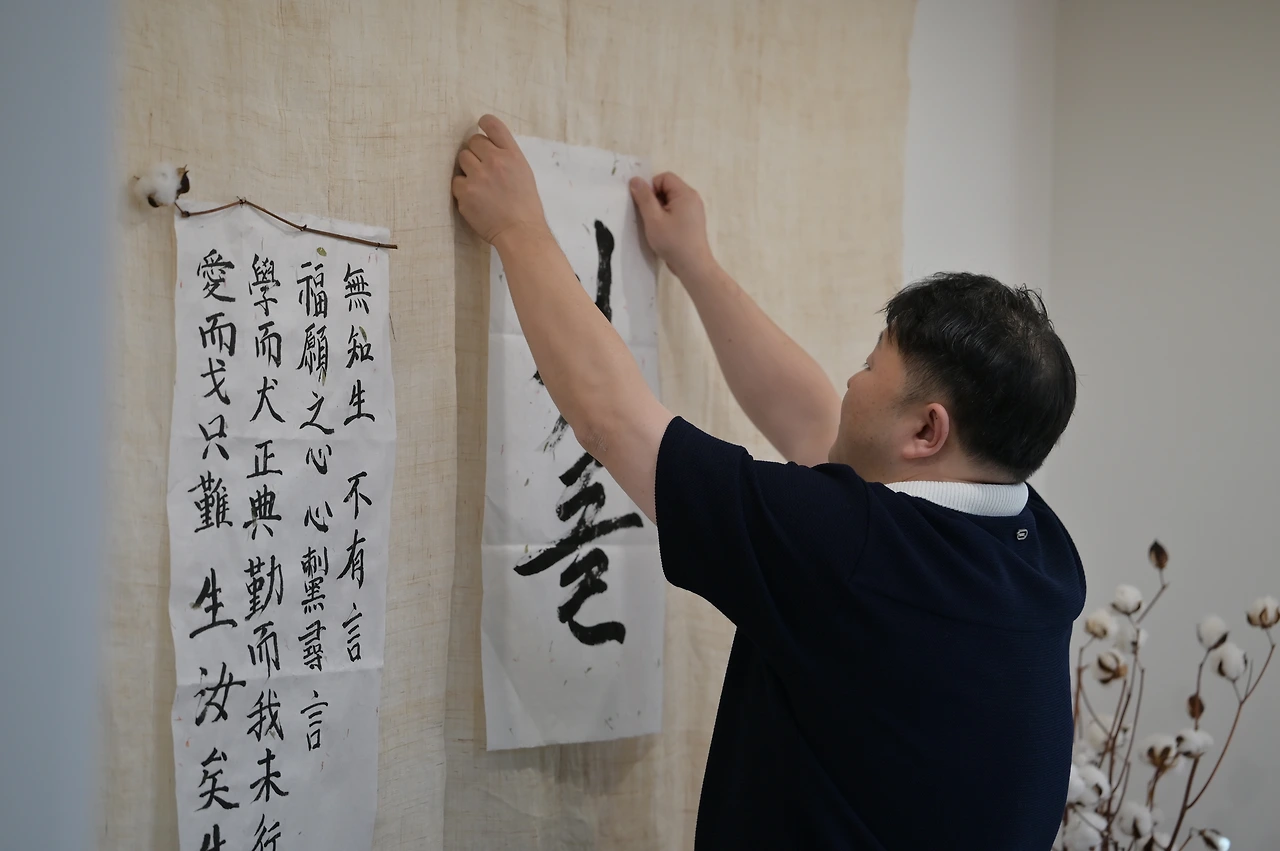 無知生 不有言
福願之心 心 尋 言
學而犬正典勤而我未行
愛而戈只難 生汝矣生